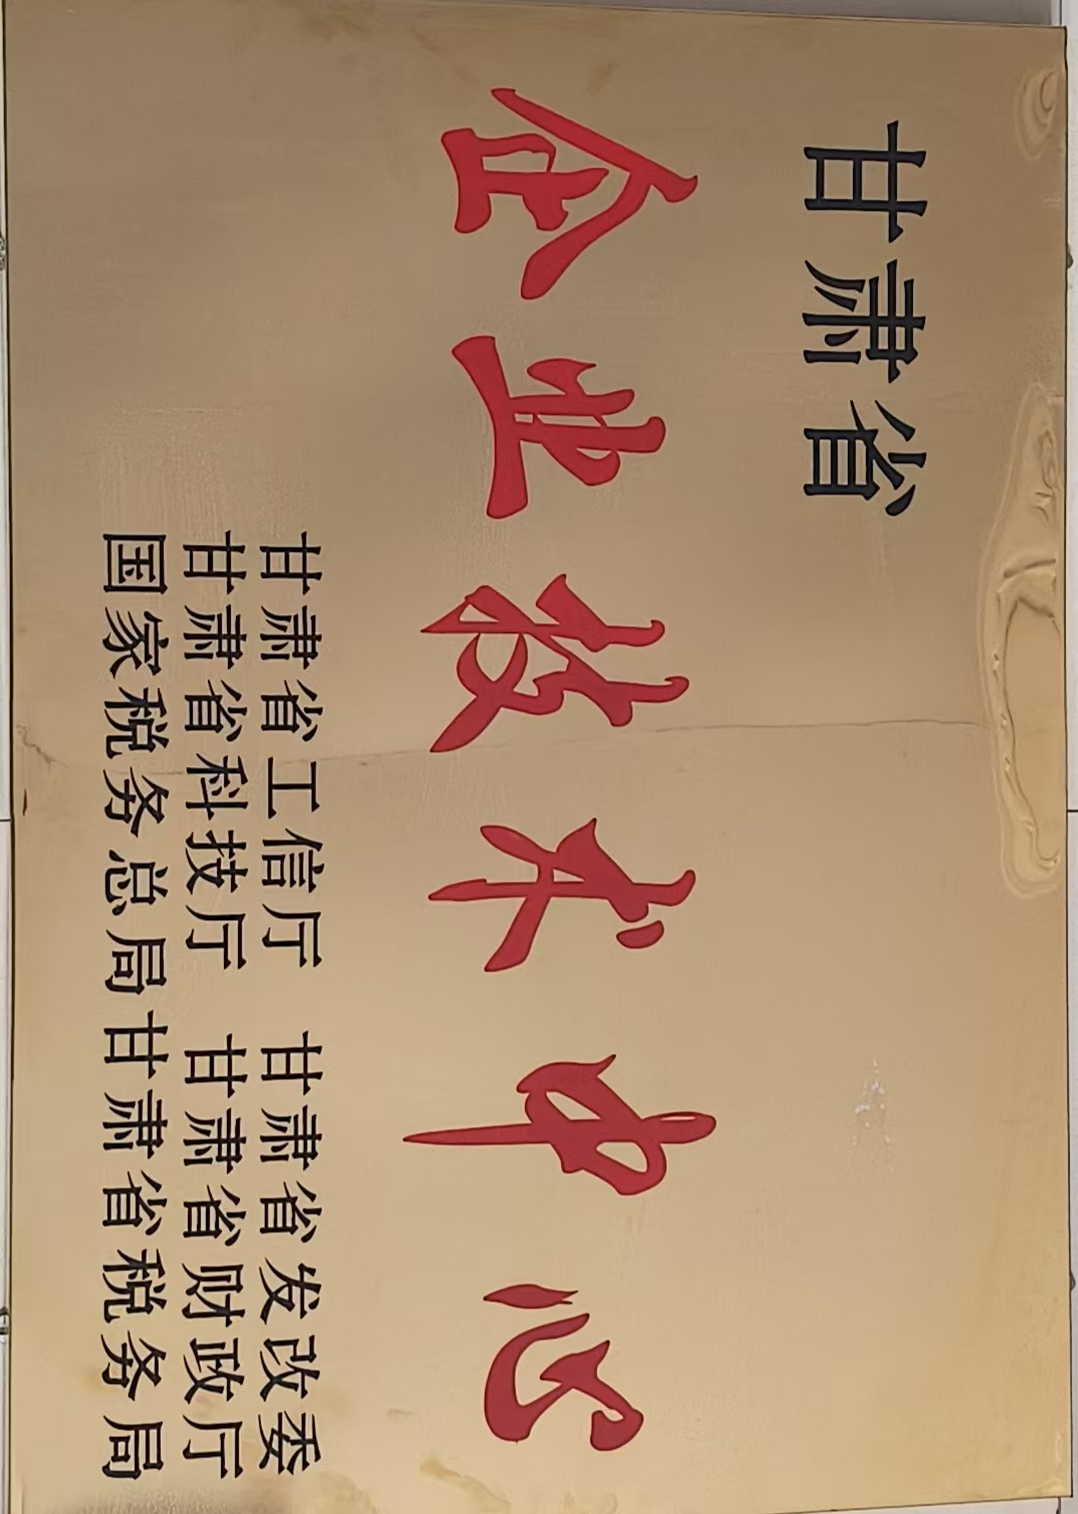 甘肃省
企业技术中心
甘肃省工信厅 甘肃省发改委
甘肃省科技厅 甘肃省财政厅
国家税务总局甘肃省税务局